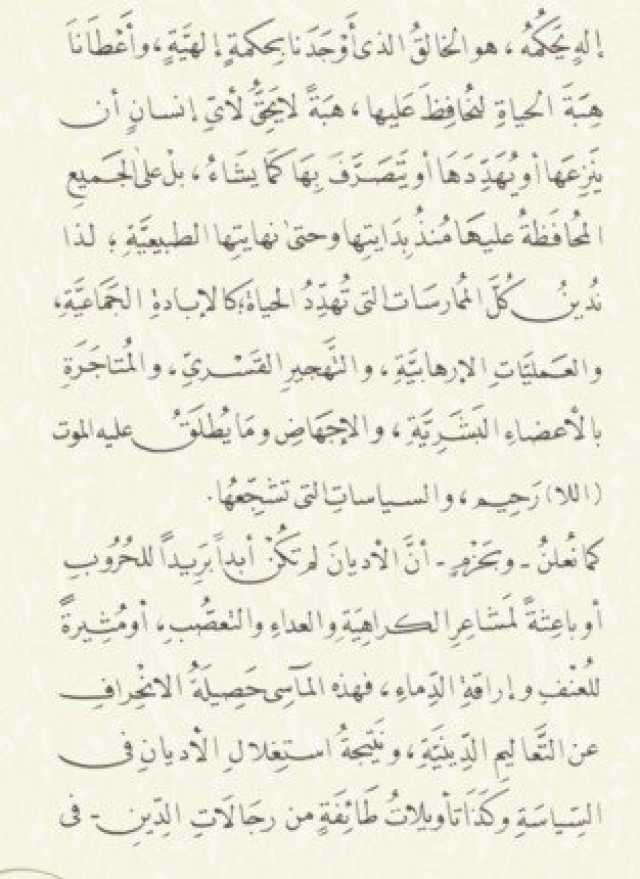 إلهٍ يَحكُمُهُ، هو الخالقُ الذى أَوْجَدَنا بحِكمةٍ إلهيَّةٍ، وأَعْطَانَا
هِبَةَ الحياةِ لنُحَافِظَ عَليها، هبَةً لا يَحِقُّ لأىِّ إنسانٍ أن
يَنْزِعَها أو يُهَدِّدَهَا أو يَتَصَرَّفَ بِهَا كَمَا يشَاءُ، بل على الجَميعِ
المُحَافَظَةُ عليهَا مُنذُ بِدَايَتِها وحتى نهايتِها الطبيعيَّةِ؛ لذا
نُدينُ كُلَّ المُمارسَات التى تُهدِّدُ الحياةَ؛ كالإبادةِ الجَمَاعيَّةِ،
والعَمليَّاتِ الإرهابيَّةِ، والتَّهجيرِ القَسْرىِّ، والمُتاجَرَةِ
بالأعضاءِ البَشَريَّةِ، والإجهَاضِ ومَا يُطلَقُ عليه الموت
(اللا) رَحِيم، والسياساتِ التى تشَجِّعُها.
كما نُعلنُ - وبحَزمٍ - أنَّ الأديانَ لم تَكُنْ أبداً بَريداً للحُرُوبِ
أو باعِثةً لمَشَاعِرِ الكراهِيَةِ والعداءِ والتعصُّبِ، أو مُثِيرةً
للعُنْفِ وإراقةِ الدِّماءِ، فهذه المآسِى حَصِيلَةُ الانحِرافِ
عن التَّعاليمِ الدِّينيَّةِ، ونتيجةُ استِغلالِ الأديانِ فى
السِّياسَةِ وكَذَا تأويلاتُ طَائِفَةٍ من رجَالاتِ الدِّينِ - فى